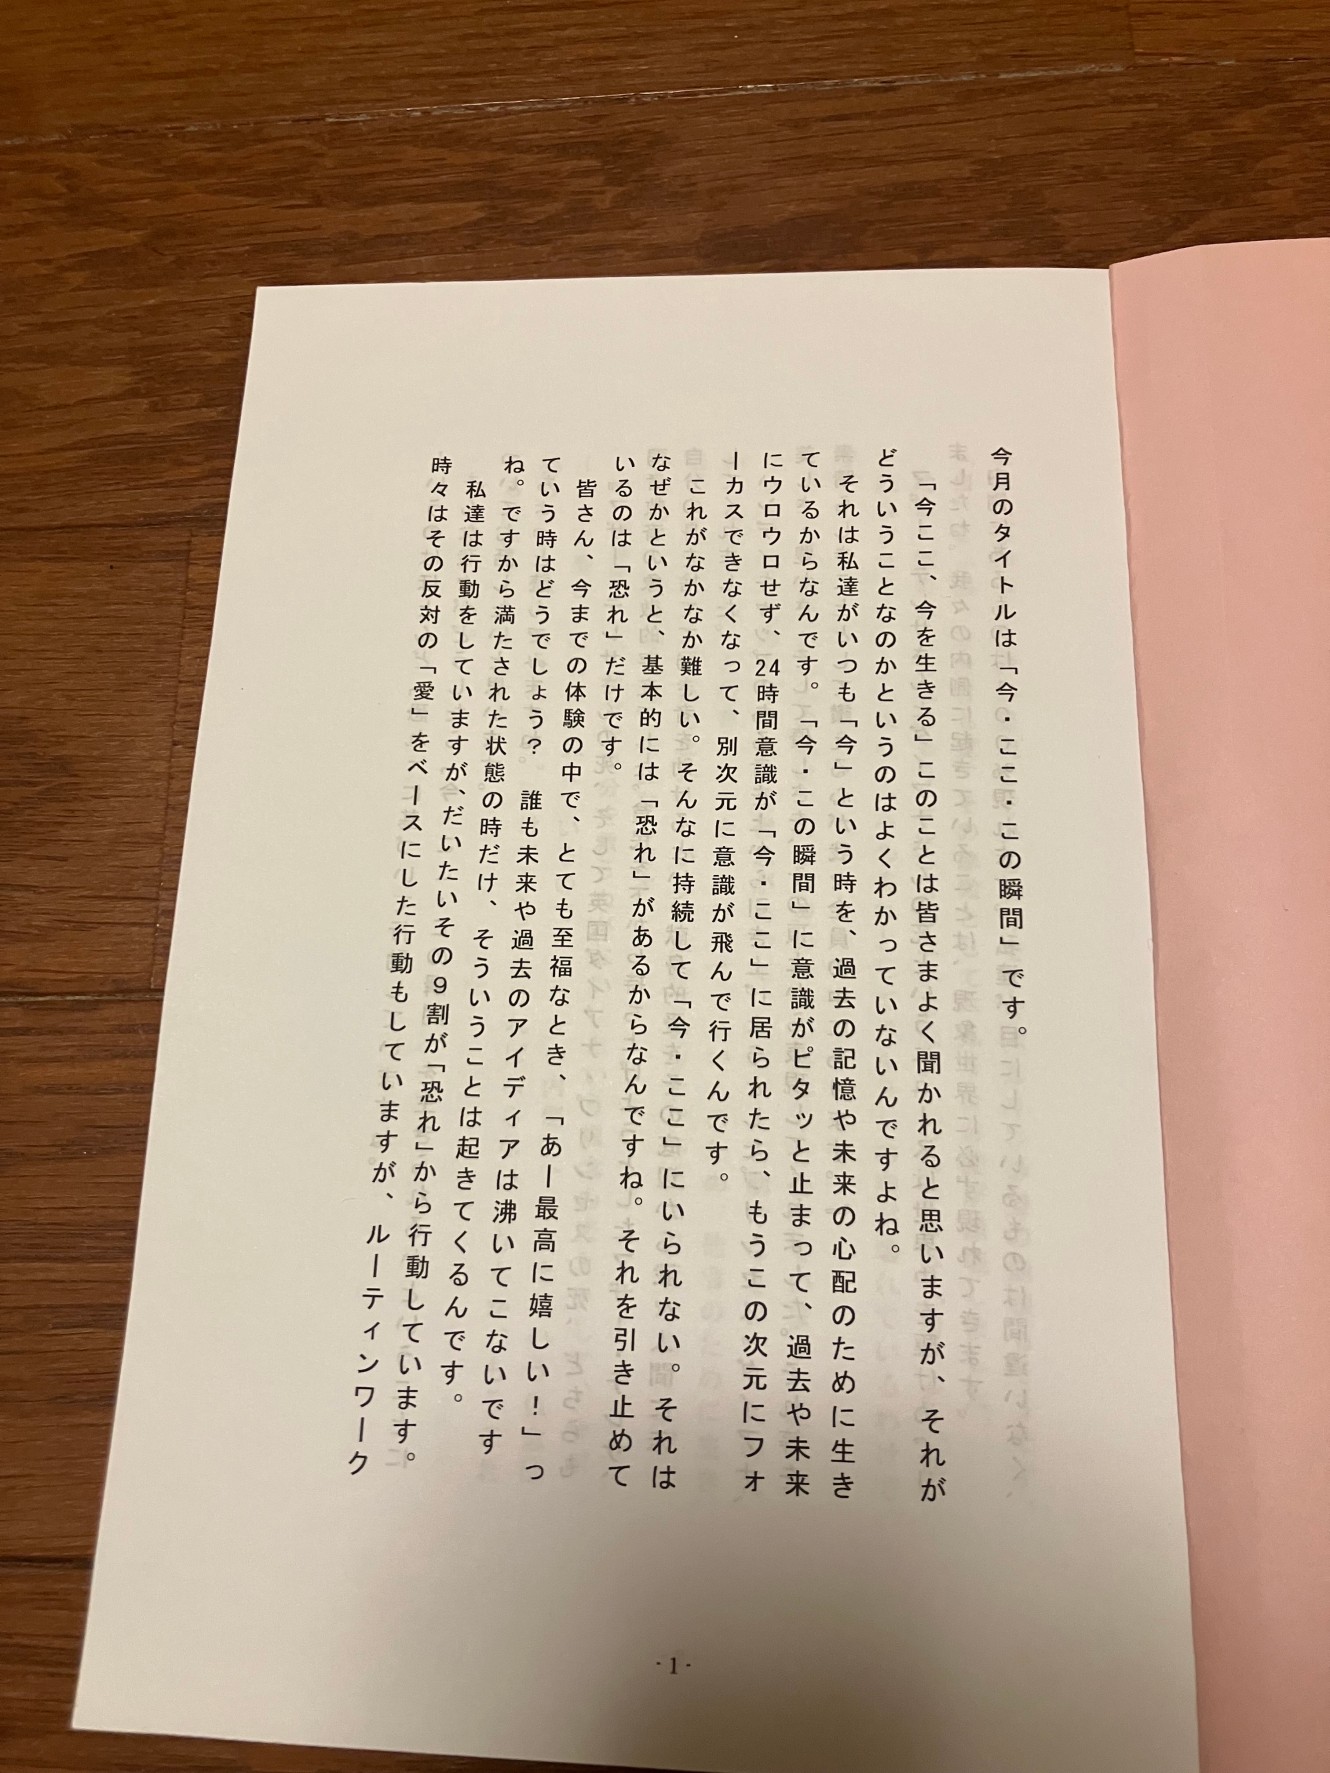 今月のタイトルは「今・ここ・この瞬間」です。
「今ここ、今を生きる」このことは皆さまよく聞かれると思いますが、それが
どういうことなのかというのはよくわかっていないんですよね。
それは私達がいつも「今」という時を、過去の記憶や未来の心配のために生き
ているからなんです。「今・この瞬間」に意識がピタッと止まって、過去や未来
にウロウロせず、24時間意識が「今・ここ」に居られたら、もうこの次元にフォ
ーカスできなくなって、別次元に意識が飛んで行くんです。
これがなかなか難しい。そんなに持続して「今・ここ」にいられない。それは
なぜかというと、基本的には「恐れ」があるからなんですね。それを引き止めて
いるのは「恐れ」だけです。
皆さん、今までの体験の中で、とても至福なとき、「あー最高に嬉しい！」っ
ていう時はどうでしょう？　誰も未来や過去のアイディアは沸いてこないです
ね。ですから満たされた状態の時だけ、そういうことは起きてくるんです。
私達は行動をしていますが、だいたいその９割が「恐れ」から行動しています。
時々はその反対の「愛」をベースにした行動もしていますが、ルーティンワーク
- 1 -